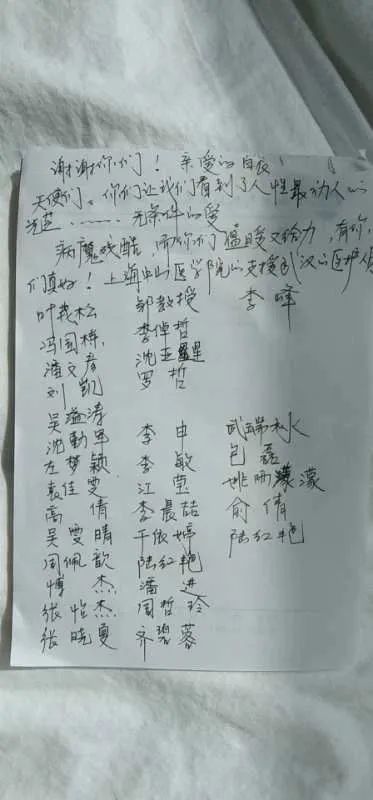 谢谢你们！亲爱的白衣
天使们。你们让我们看到了人性最动人的
光芒……无条件的爱
病魔残酷，而你们温暖又给力，有你
们真好！上海中山医学院的支援武汉的医护人
叶茂松 邹教授 李峰
冯国栋 李倬哲
潘文彦 沈亚星
刘凯 罗哲
吴溢涛
沈勤军 李申 武端水
左梦颖 李敏 包磊
袁佳雯 江莹 姚雨濛
高倩 李晨喆 俞倩
吴雯晴 于依婷 陆红艳
周佩歆 陆红艳
博杰 潘进
张怡杰 周哲玲
张晓夏 齐碧蓉